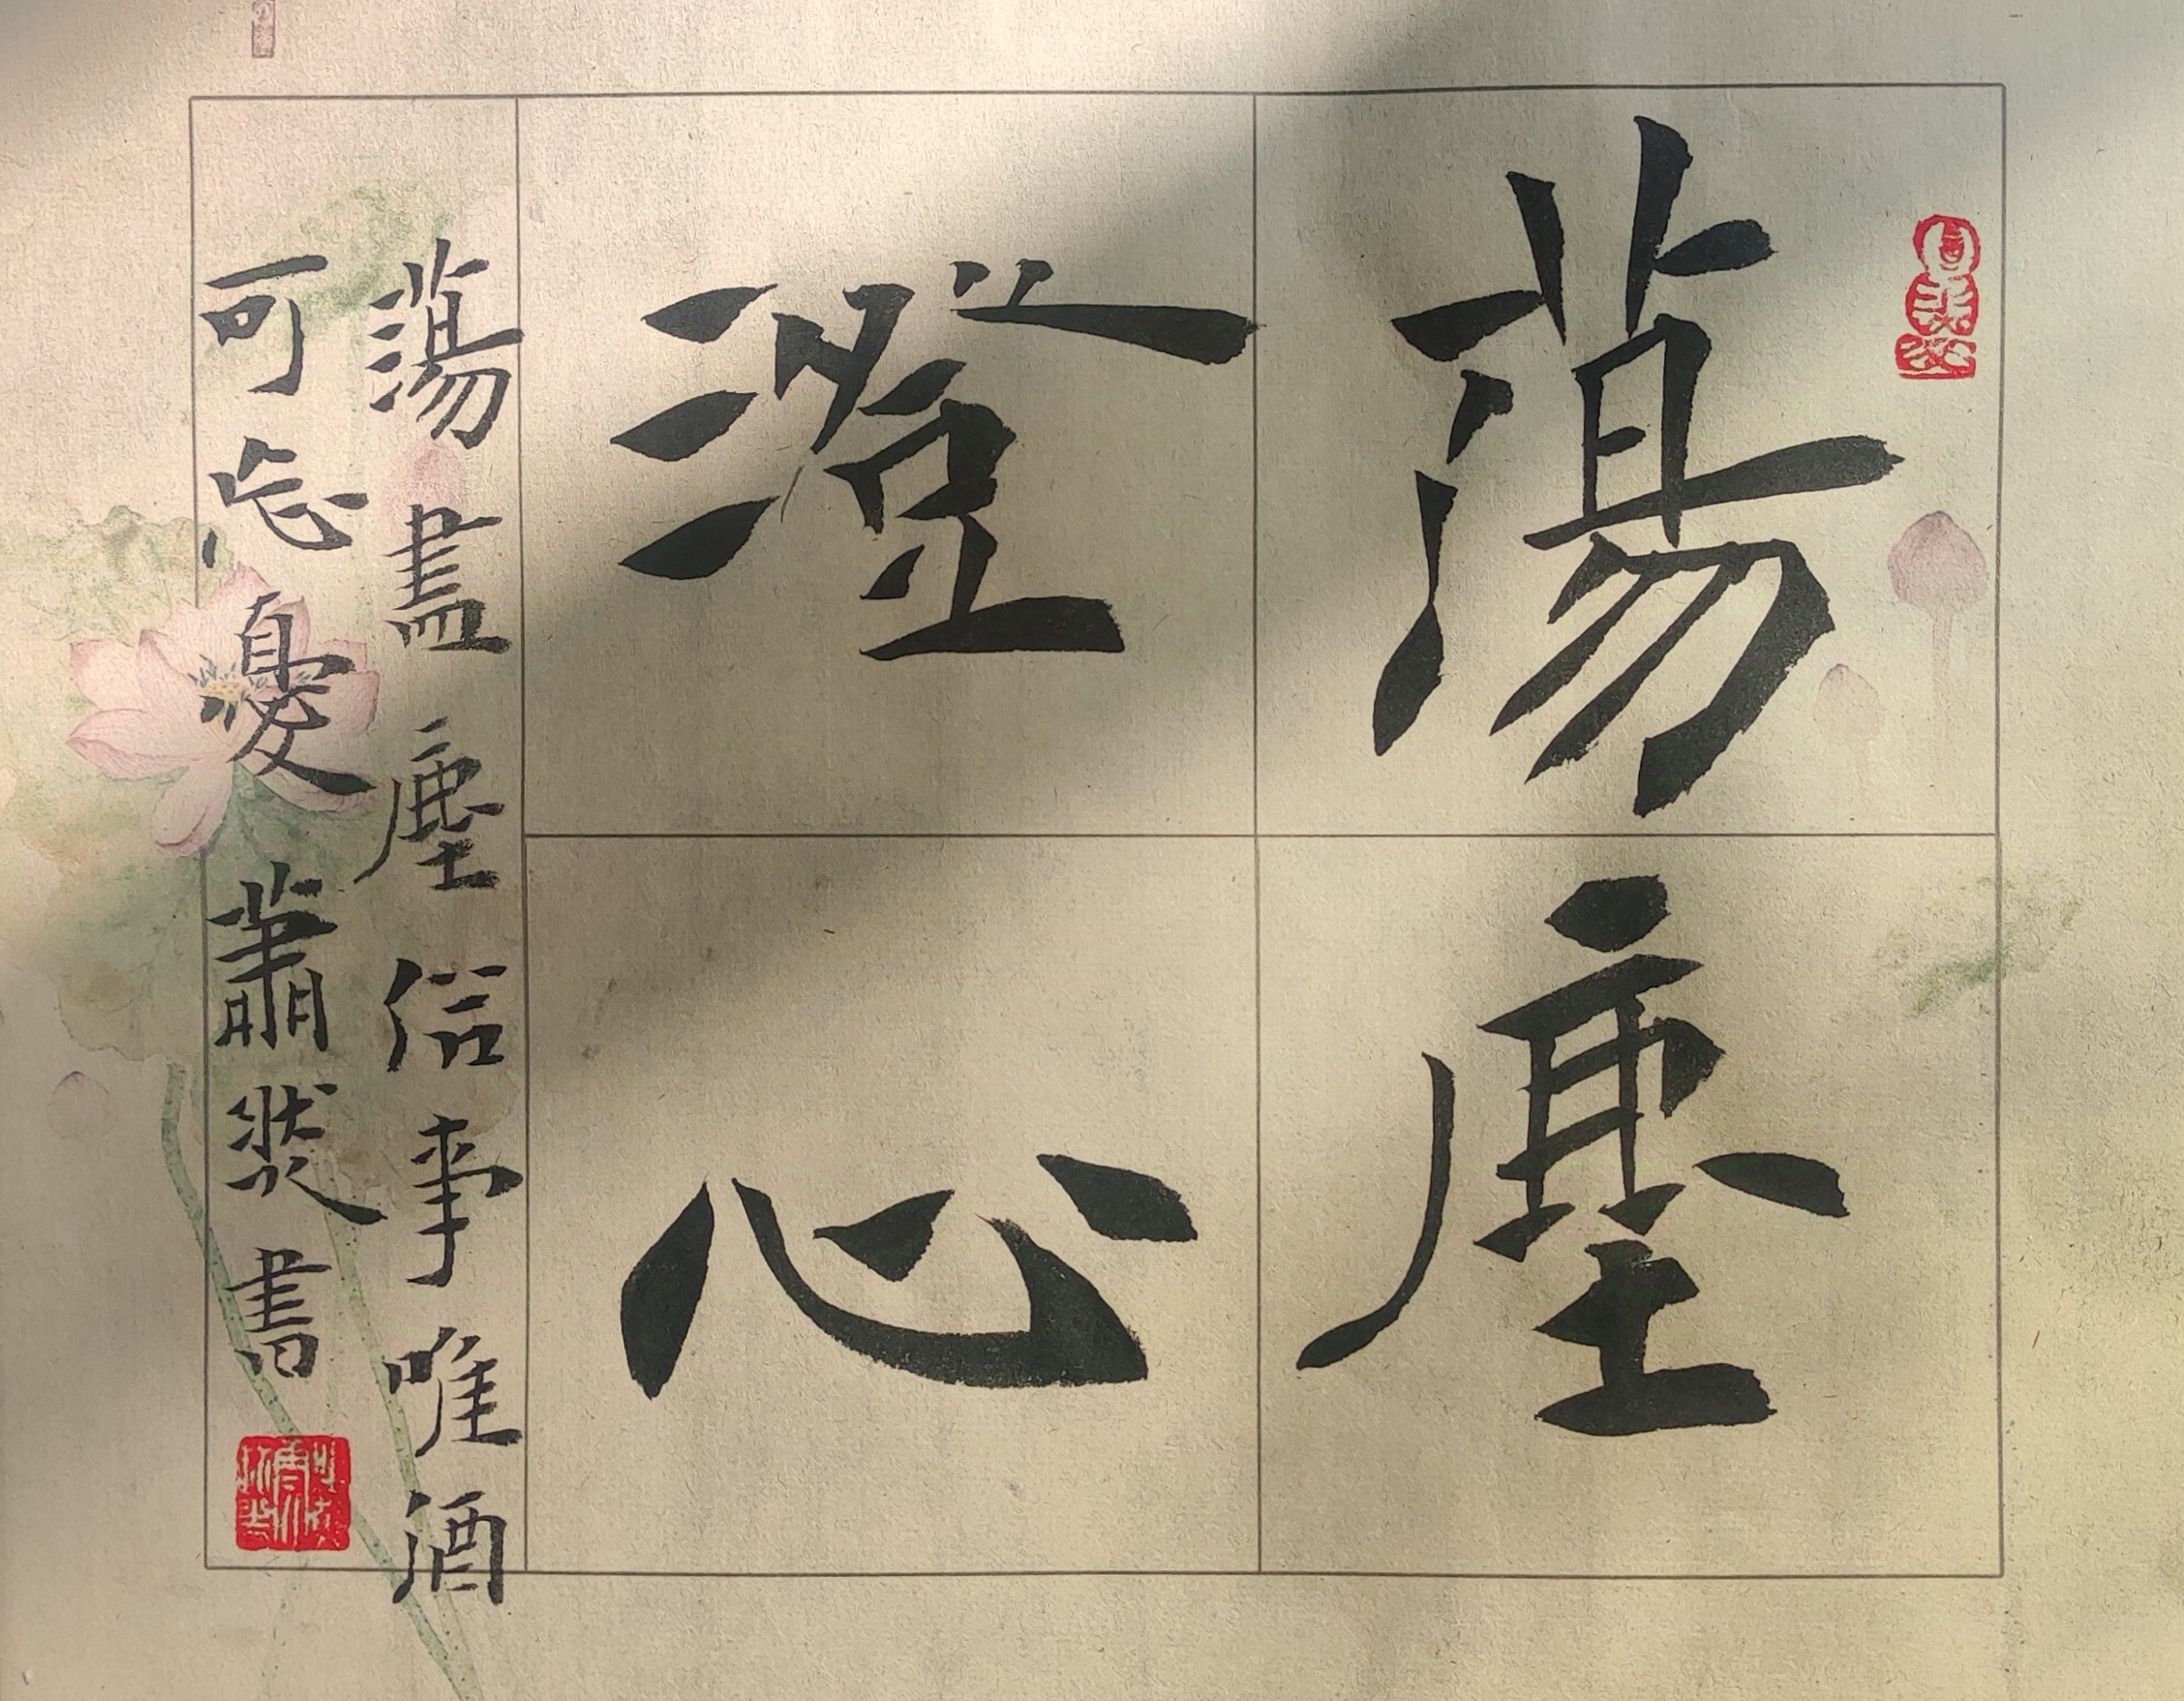 蕩塵
澄心
蕩盡塵俗事唯酒
可忘憂蕭裴書